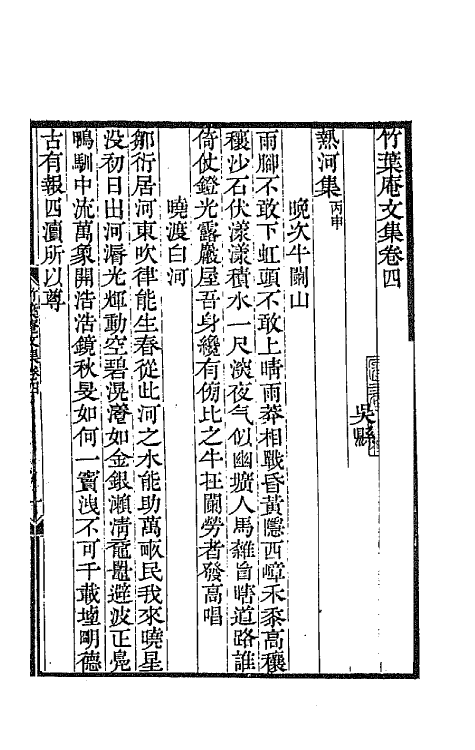 竹葉庵文集卷四
吳縣
熱河集丙申
晚次牛闌山
雨腳不敢下虹頭不敢上晴雨莽相戰昏黃隱西嶂禾黍高穰
穰沙石伏漾漾積水一尺淡夜气似幽壙人馬雜旨瞎道路誰
倚仗鐙光露巖屋吾身纔有傍比之牛在闌勞者發高唱
曉渡白河
鄒衍居河東吹律能生春從此河之水能助萬畝民我來曉星
沒初日出河漘光輝動空碧滉瀁如金銀瀨淸竉鼉避波正鳧
鴨馴中流萬象開浩浩鏡秋旻如何一竇洩不可千載堙明德
古有報四瀆所以尊
竹葉庵文集卷四